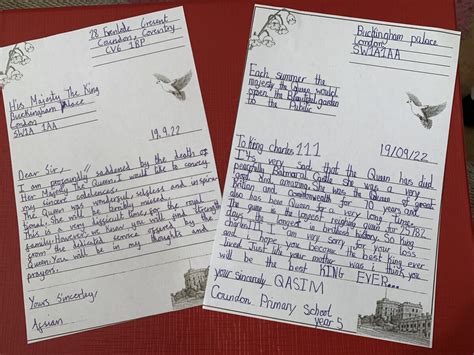 78 Evenlode Cresent
Coundon, Coventry
CV6 1BP
His Majesty The King
Buckingham Palace
London
SW1A 1AA
19.9.22
Dear Sir,
I am profoundly saddened by the death of
Her Majesty The Queen. I would like to convey
sincere condolences.
The Queen was wonderful selfless and
She will be sorely missed.
This is a very difficult times for the royal
family. However, we know you will find strength
from the dedicated service offered by the
Queen. You will be in my thoughts and
prayers.
Yours Sincerley
Buckingham palace
London
SW1A1AA
Each summer the
majesty the Queen would
open the Beautiful garden
to the Public
To King charles 111
19/09/22
It's very sad that the Queen has died
peacefully Balmoral Castle. She was a very
kind and amazing. She was the Queen of great
Britian and Commonwealth for 70 years and
also has been Queen for a long time
The Queen is the longest reighing for 25782
days the longest is british history. So King
charles I am very sorry for your loss
and i hope you be the best king ever
lived Just like your mother was i think you
will be the best KING EVER...
your sincerely QASIM
Coundon Primary School
year 5